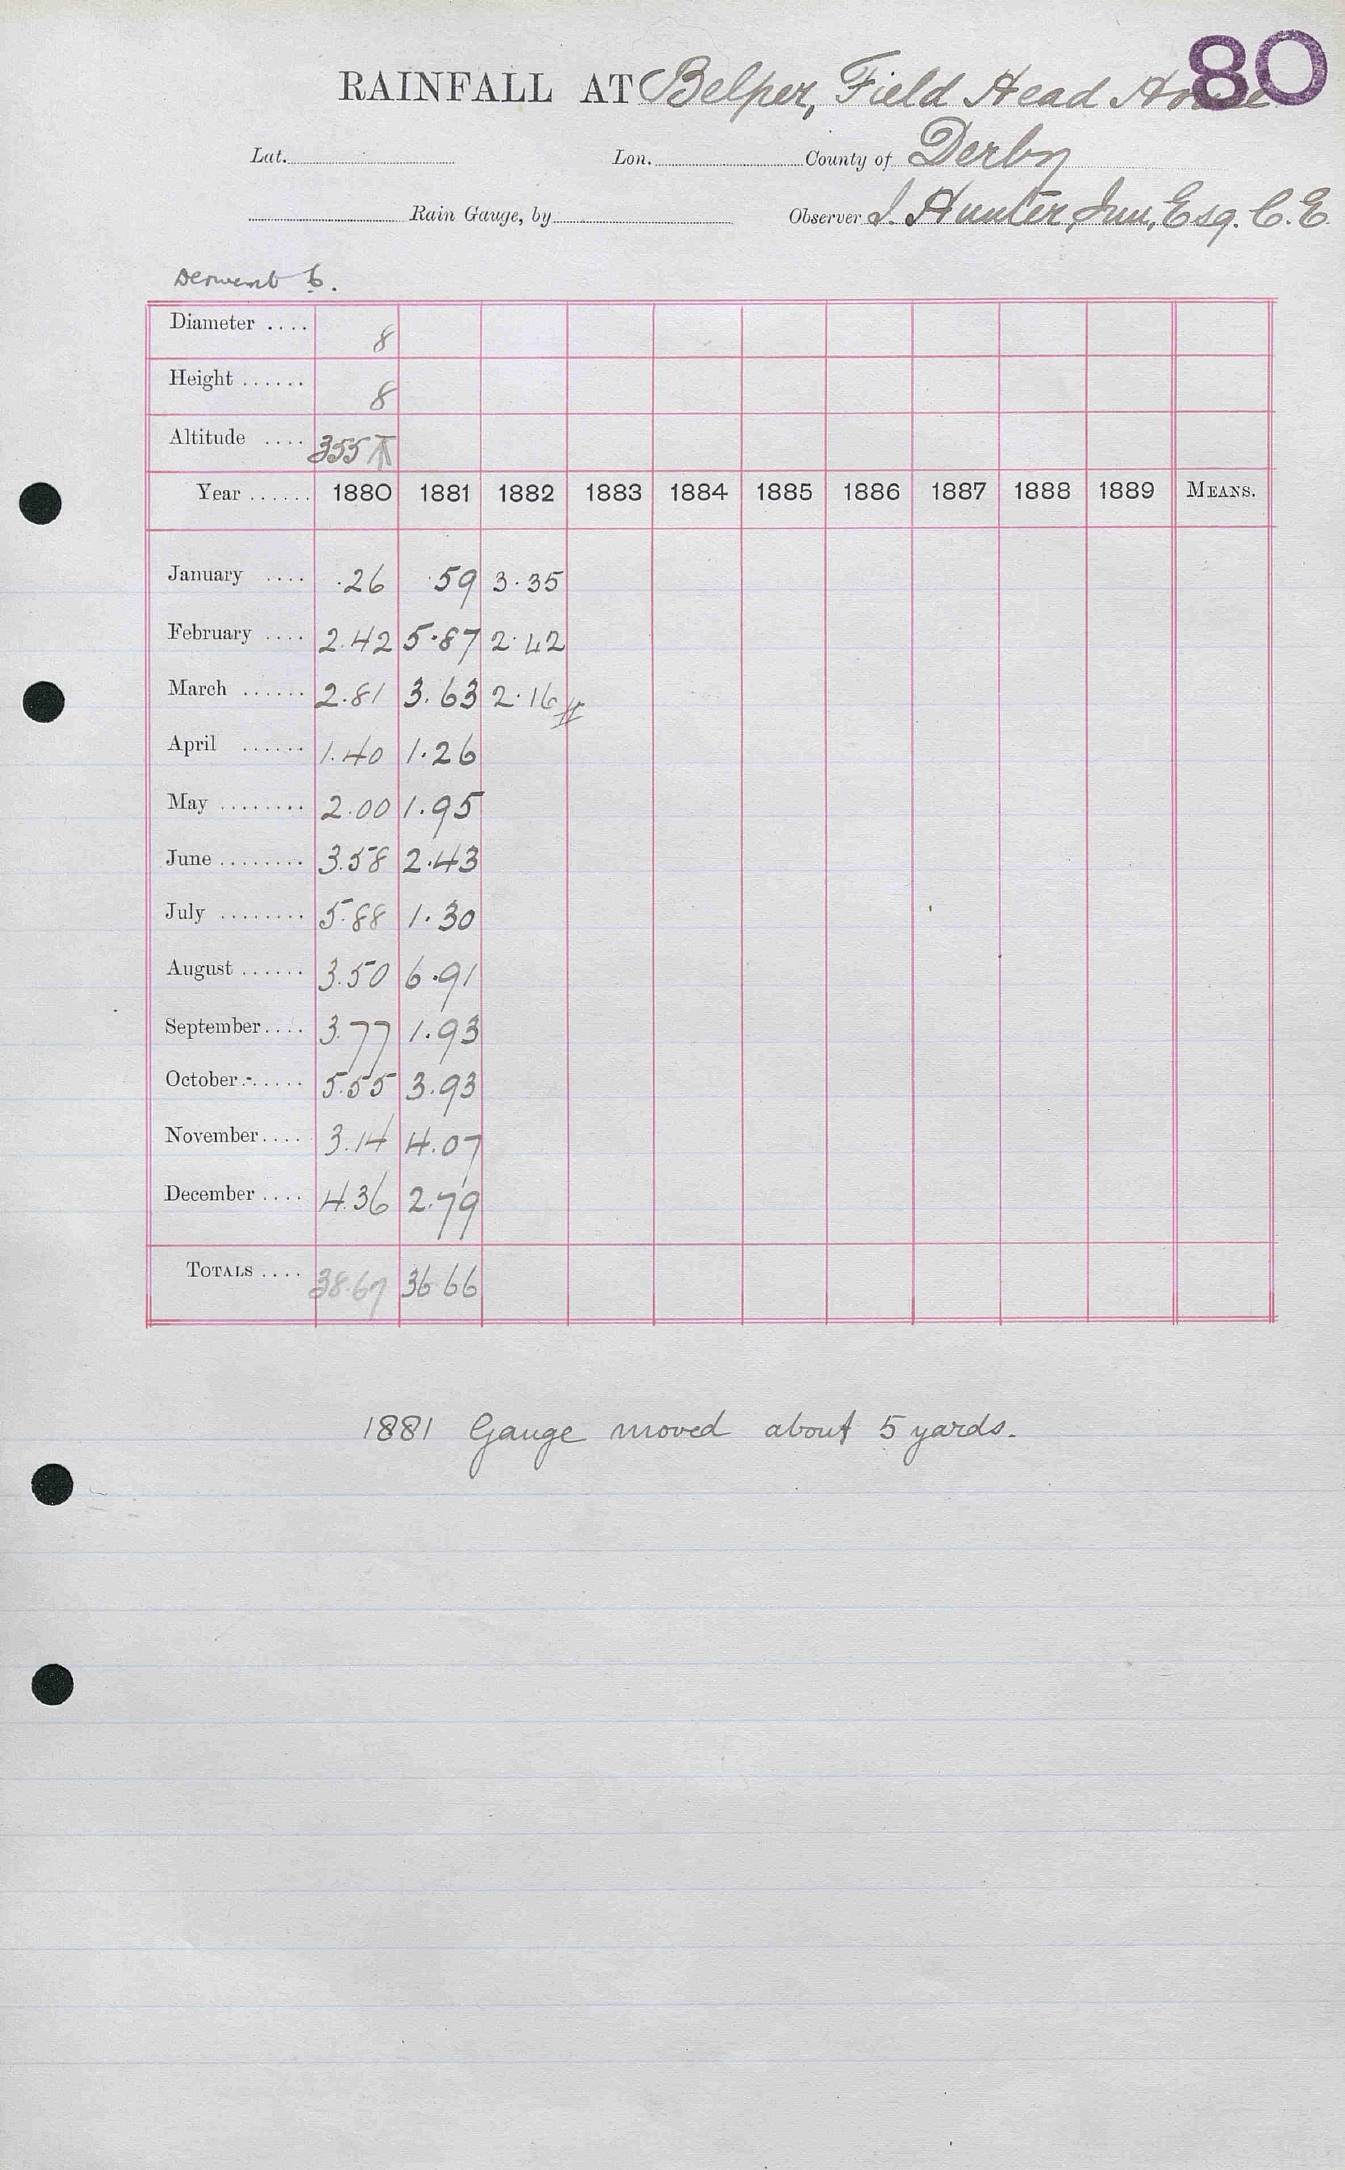 80
RAINFALL AT Belper, Field Head House
Lat. Lon. County of Derby
Rain Gauge, by Observer J. Hunter, Jun, Esq. C.E.
Derwent 6.
Diameter .... 8
Height ...... 8
Altitude .... 355 T
Year ...... 1880 1881 1882 1883 1884 1885 1886 1887 1888 1889 MEANS.
January .... .26 .59 3.35
February .... 2.42 5.87 2.42
March ...... 2.81 3.63 2.16 #
April ...... 1.40 1.26
May ........ 2.00 1.95
June ........ 3.58 2.43
July ........ 5.88 1.30
August ...... 3.50 6.91
September.... 3.77 1.93
October ...... 5.55 3.93
November.... 3.14 4.07
December .... 4.36 2.79
TOTALS .... 38.67 36.66
1881 Gauge moved about 5 yards.